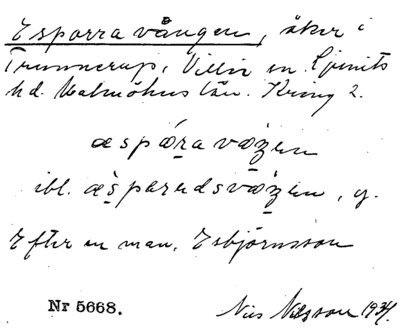 Esparravången, åker i
Trunnerup, Villie sn. Ljunits
hd. Malmöhus län. Kring 2.
æspǿra vøʒen
ibl. æsparedsvøʒen, y.
Efter en man, Esbjörnsson
Nr 5668. Nils Nilsson 1934.